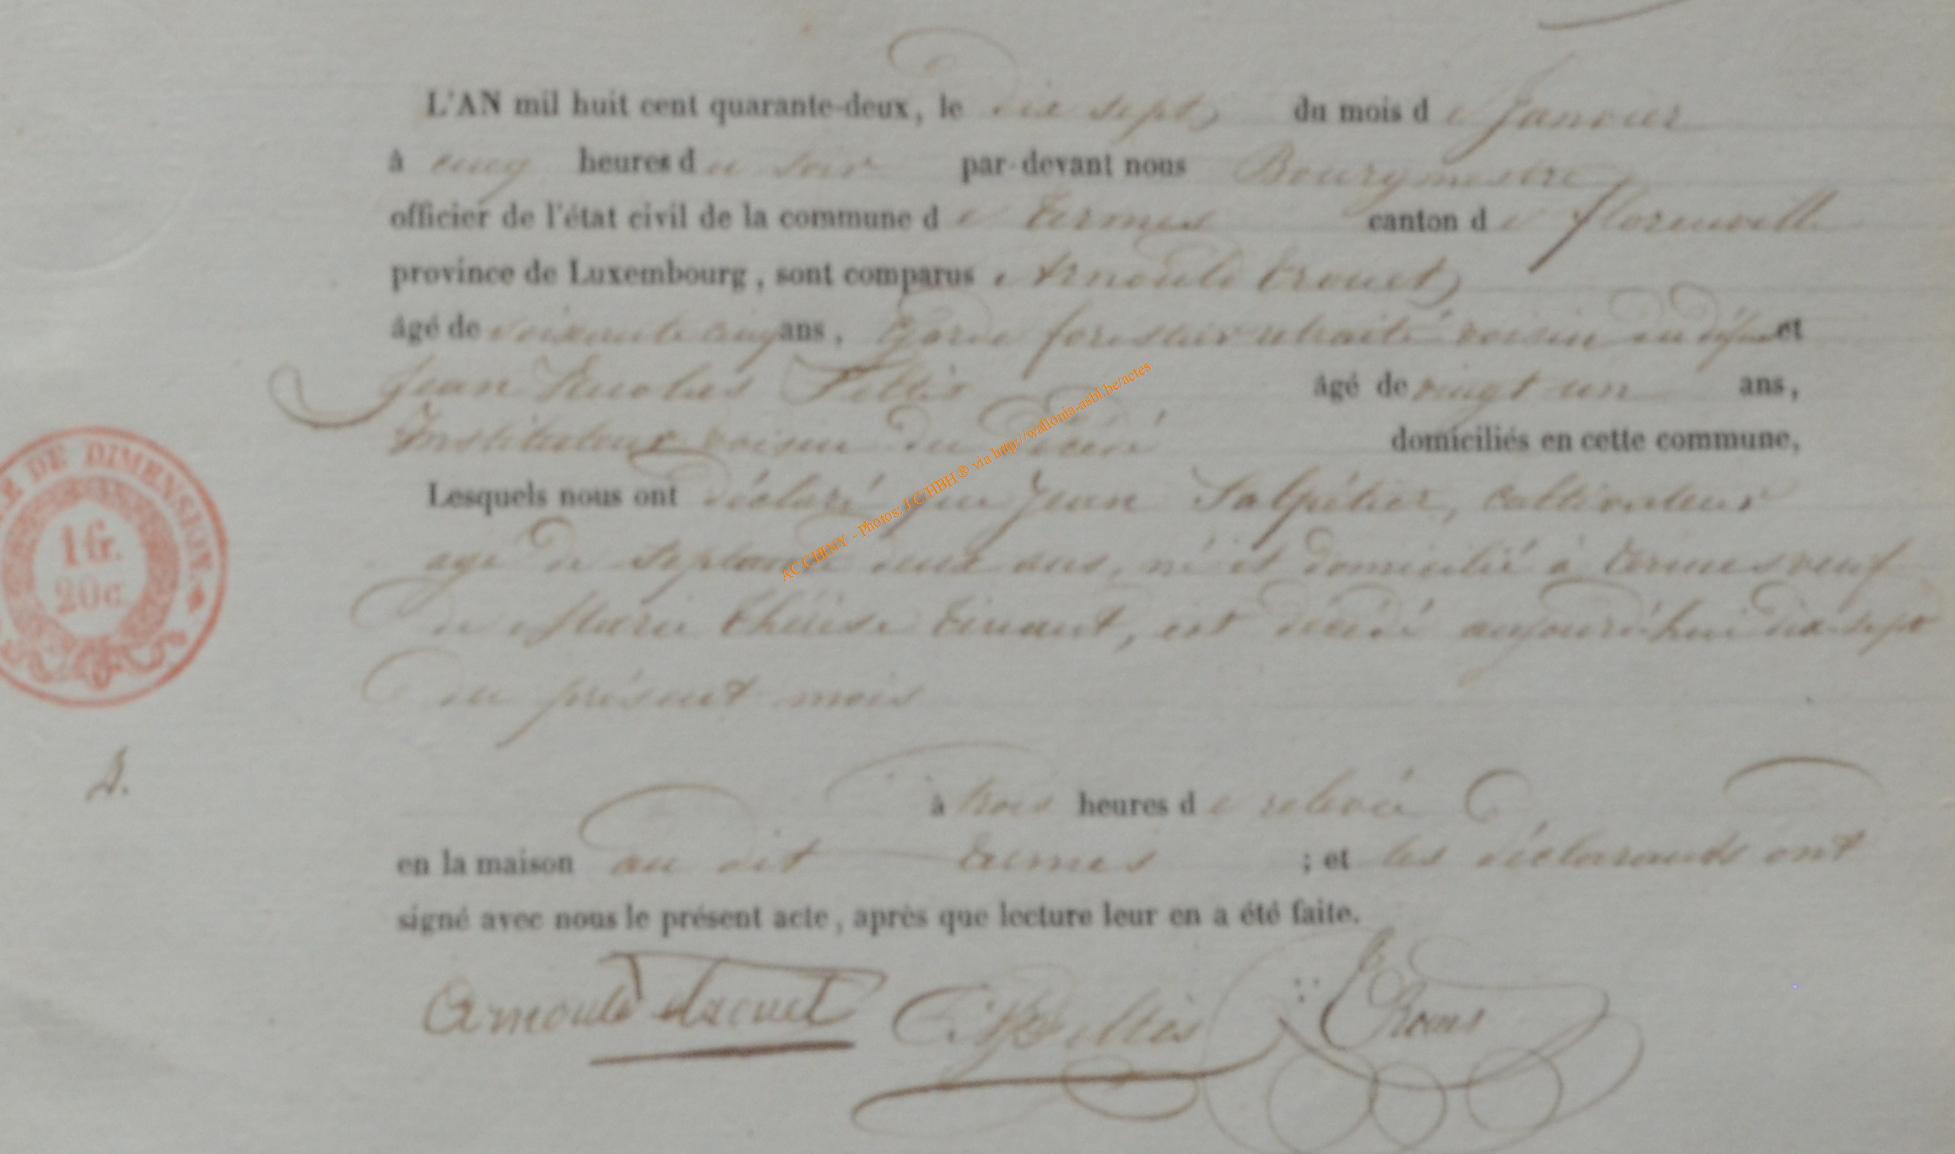 L'AN mil huit cent quarante-deux, le dix sept du mois de Janvier
à cinq heures du soir par-devant nous Bourgmestre
officier de l'état civil de la commune de termes canton de florenville
province de Luxembourg, sont comparus Arnould trouet
âgé de soixante cinq ans, Garde forestier retraité voisin du et
Jean Nicolas âgé de vingt un ans,
Instituteur voisin du décédé domiciliés en cette commune,
Lesquels nous ont déclaré que Jean Salpétier, cultivateur
agé de septante deux ans, né et domicilié à termes veuf
de Marie thérèse tinant, est décédé aujourd'hui dix-sept
du présent mois
à trois heures de relevée
en la maison au dit termes ; et les déclarants ont
signé avec nous le présent acte, après que lecture leur en a été faite.
Arnould
DE DIMENSION.
1 fr.
20c
AC CHINY - Photos: via http://wallonia-asbl.be/actes